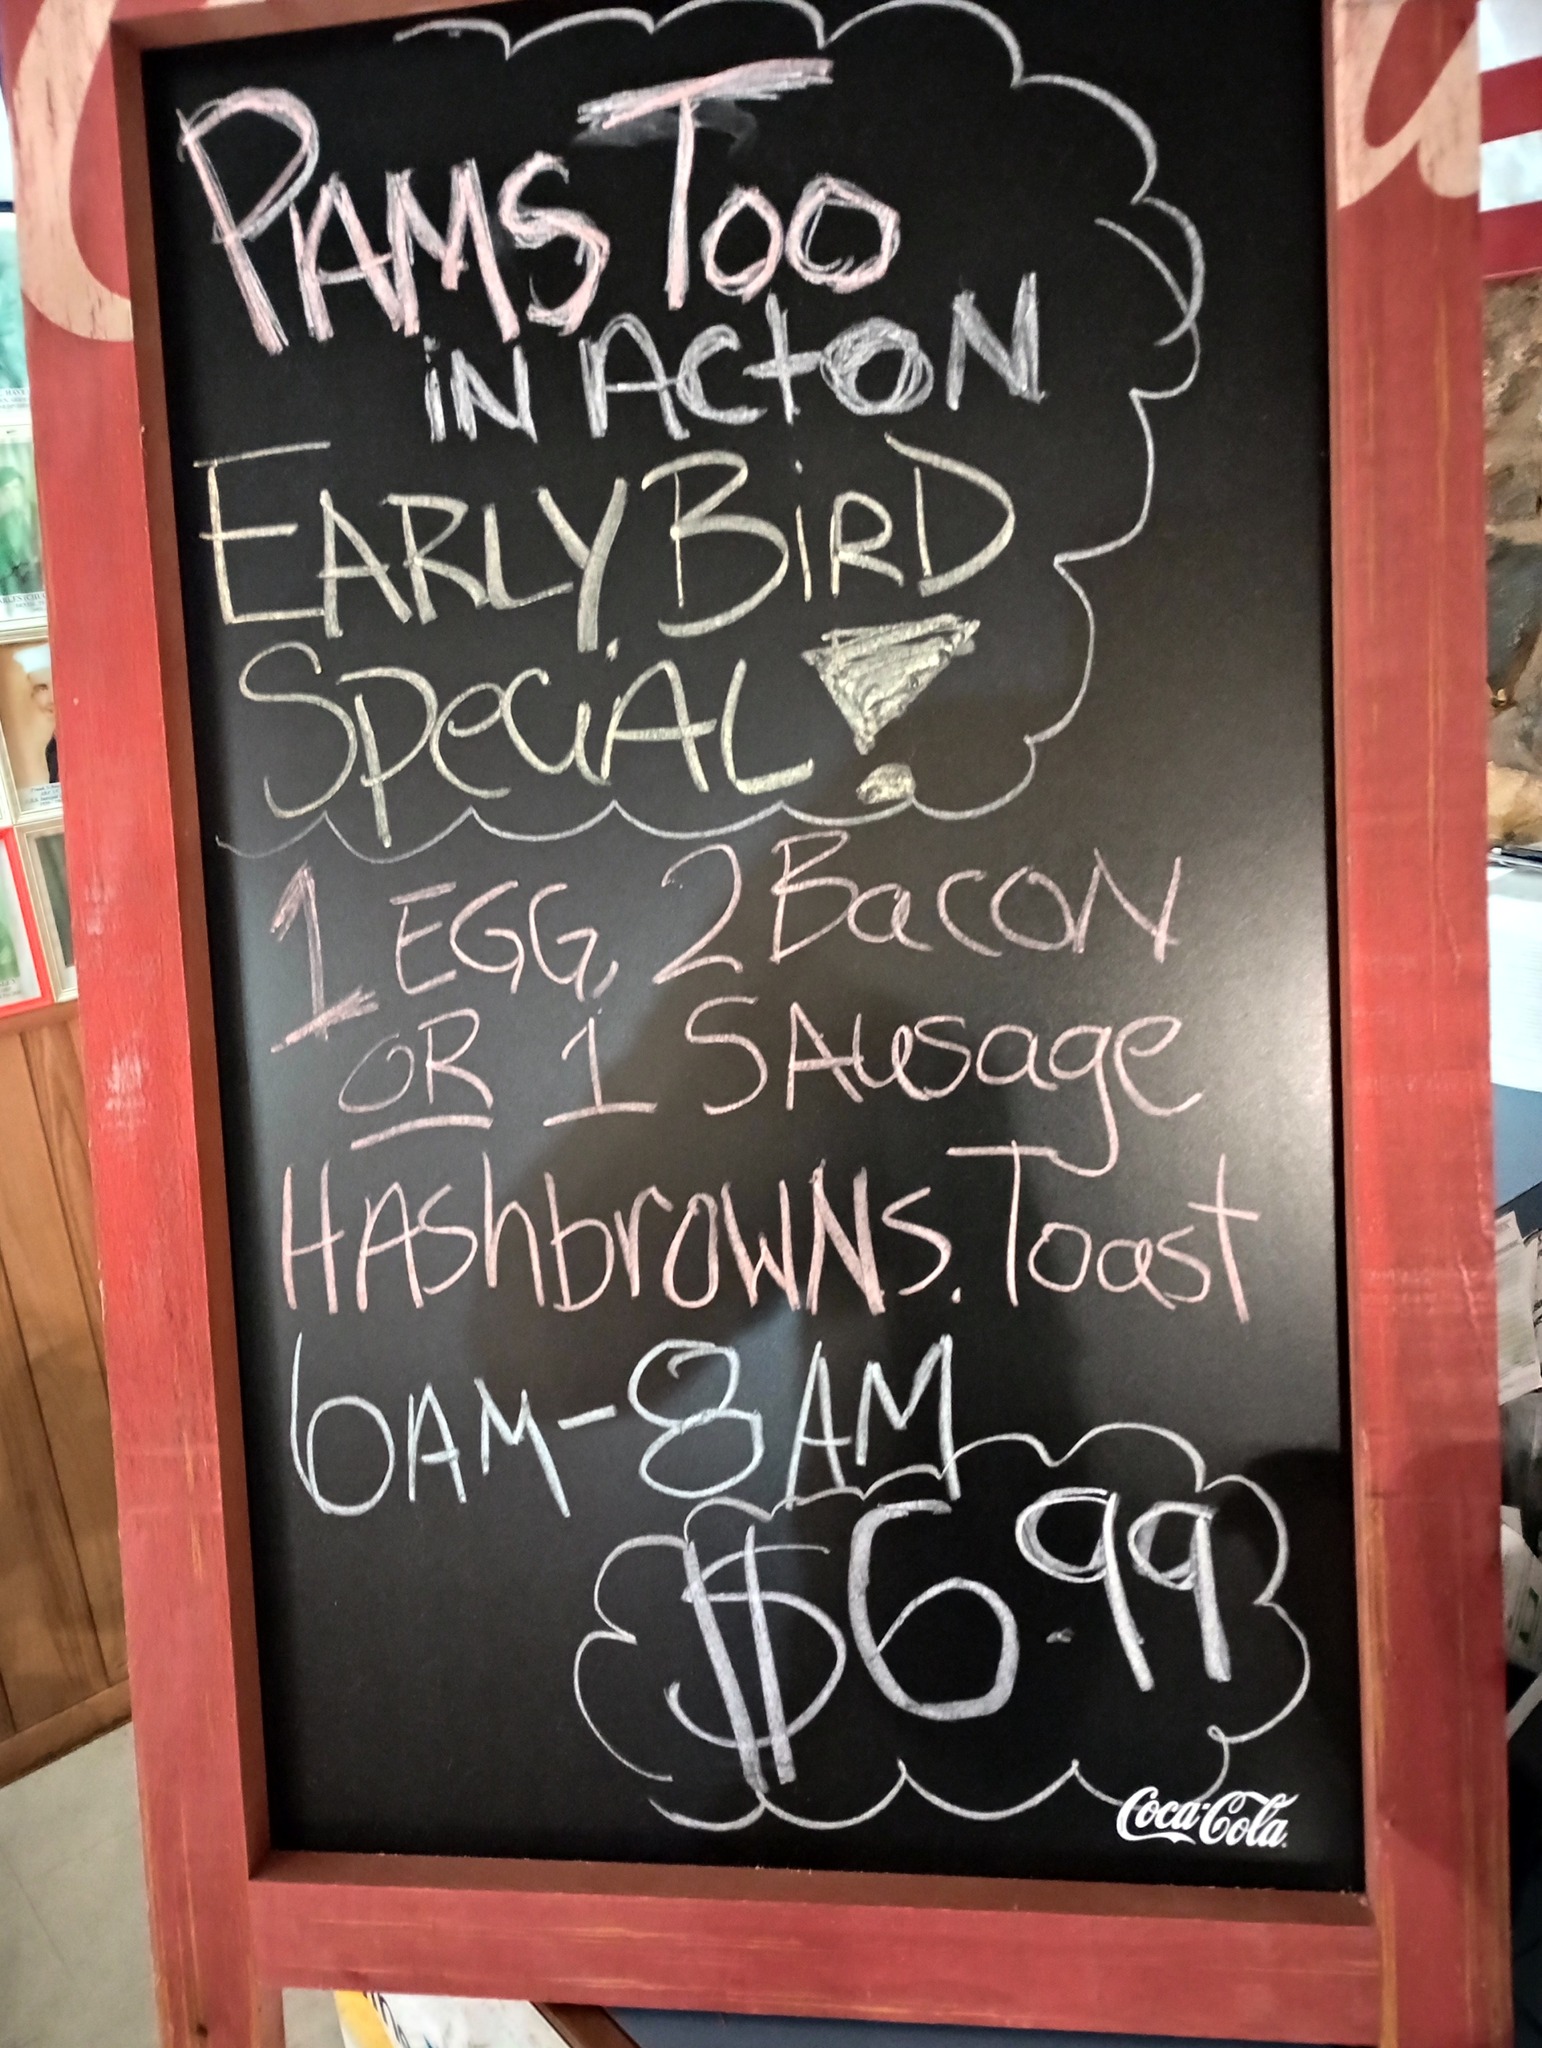 PAMS TOO
iN ACtON
EARLY BiRD
SpeciAL!
1 EGG, 2 Bacon
OR 1 SAusage
HAShbrowNs. Toast
6AM-8AM
$6.99
Coca-Cola